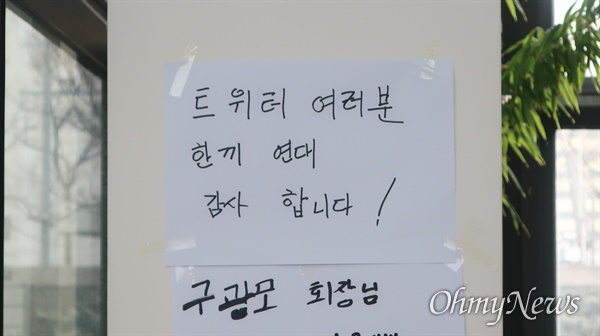 트위터 여러분
한끼 연대
감사 합니다!
구광모 회장님
OhmyNews